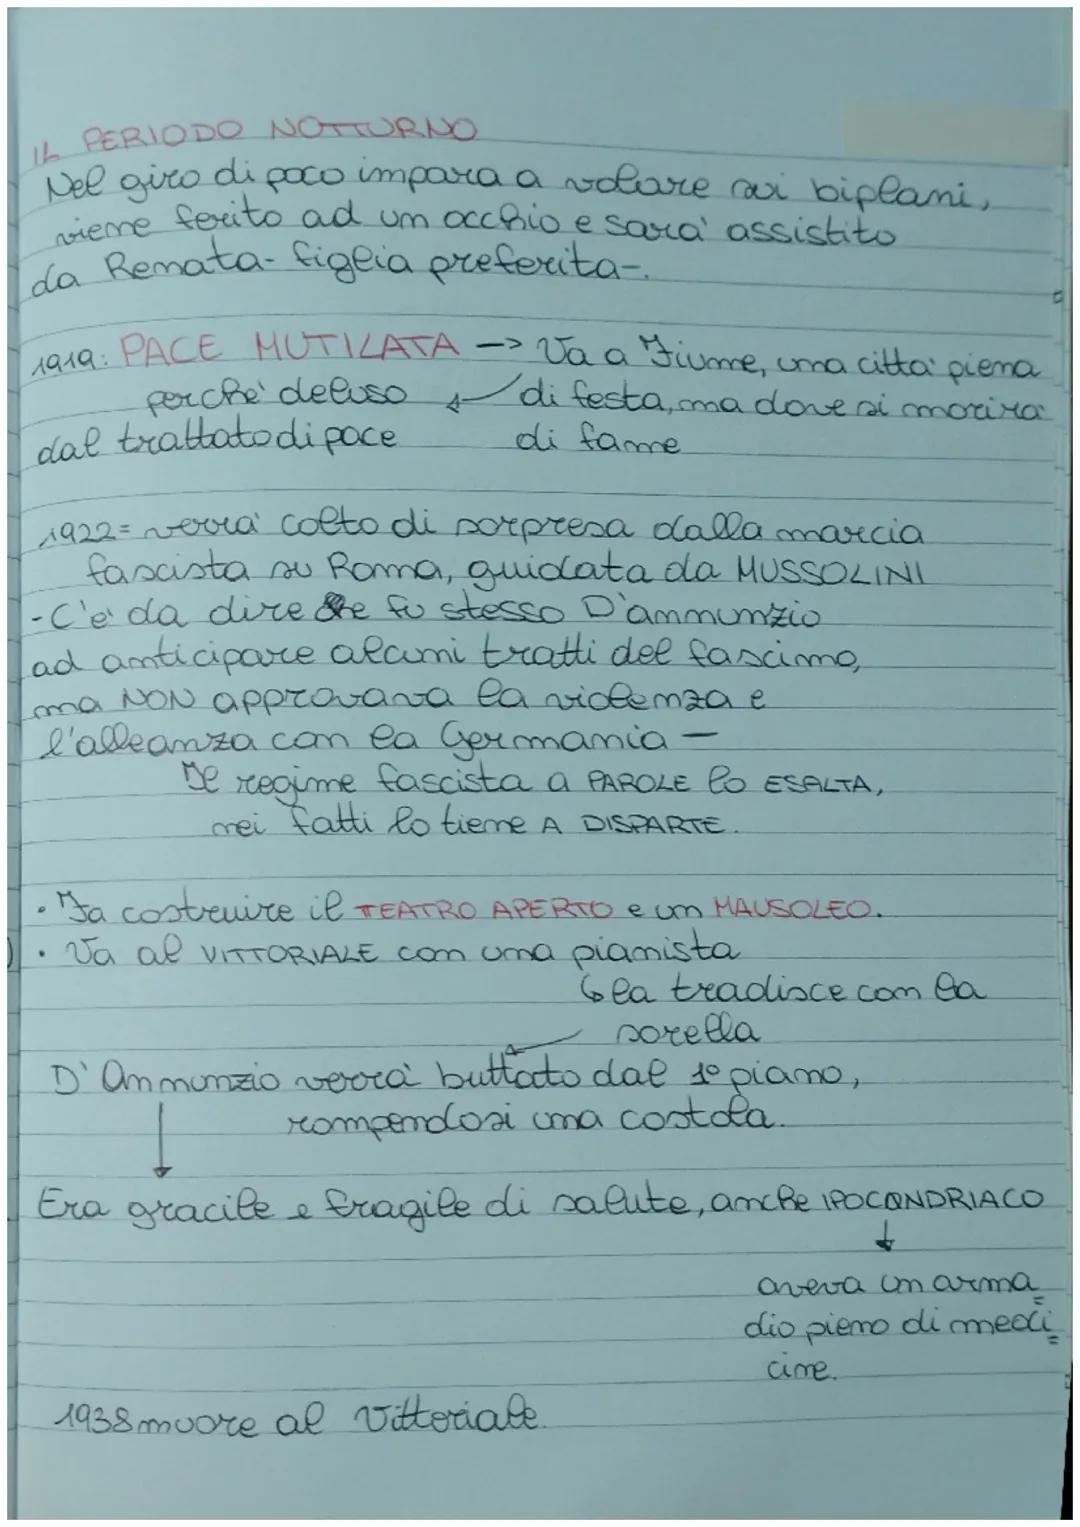 IL PERIODO NOTTURNO
Nel giro di poco impara a volare sui biplani,
viene ferito ad un occhio e sara' assistito
da Renata- figlia preferita-.
1919: PACE MUTILATA -> Va a Fiume, una citta' piena
perche' deluso di festa, ma dove si moriva
dal trattato di pace di fame
1922= verra' colto di sorpresa dalla marcia
fascista su Roma, guidata da MUSSOLINI
-C'e' da dire che fu stesso D'annunzio
ad anticipare alcuni tratti del fascimo,
ma NON approvava la violenza e
l'alleanza con la Germania -
Il regime fascista a PAROLE lo ESALTA,
nei fatti lo tiene A DISPARTE.
• Fa costruire il TEATRO APERTO e un MAUSOLEO.
• Va al VITTORIALE con una pianista
↳ la tradisce con la
sorella
D'Annunzio verra' buttato dal 1º piano,
rompendosi una costola.
Era gracile e fragile di salute, anche IPOCONDRIACO
aveva un arma=
dio pieno di medi=
cine.
1938 muore al Vittoriale.